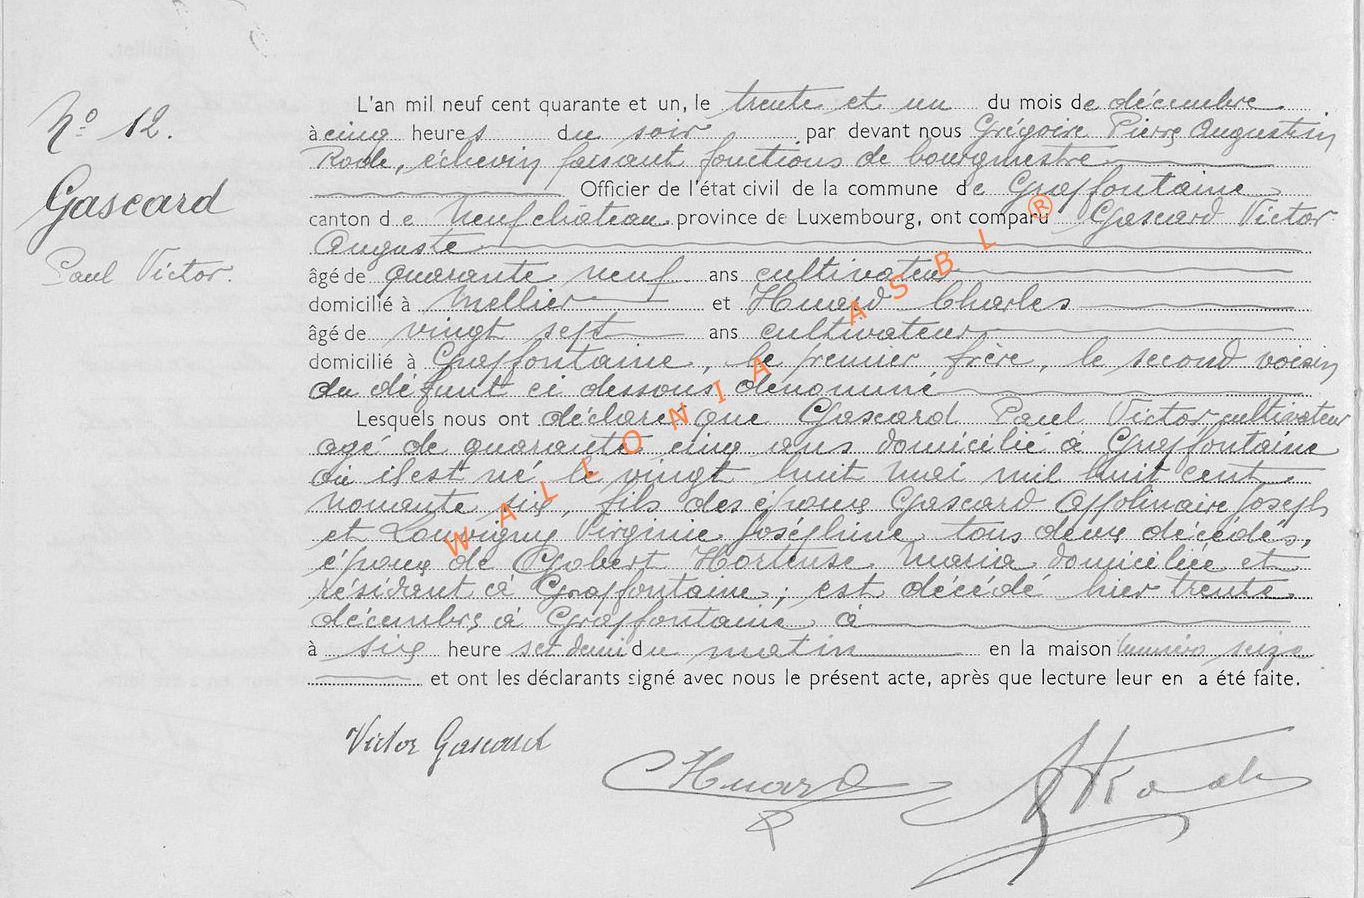 N° 12.
Gascard
Paul Victor.
L'an mil neuf cent quarante et un, le trente et un du mois de décembre
à cinq heures du soir par devant nous Grégoire Pierre Augustin
Rode, échevin faisant fonctions de bourgmestre
Officier de l'état civil de la commune de Grapfontaine
canton de Neufchâteau province de Luxembourg, ont comparu Gascard Victor
Auguste
âgé de quarante neuf ans cultivateur
domicilié à Mellier et Huard Charles
âgé de vingt sept ans cultivateur
domicilié à Grapfontaine, le premier frère, le second voisin
du défunt ci dessous dénommé
Lesquels nous ont déclaré que Gascard Paul Victor cultivateur
agé de quarante cinq ans domicilié à Grapfontaine
où il est né le vingt huit mai mil huit cent
nonante six, fils des époux Gascard Appolinaire Joseph
et Louvigny Virginie Joséphine tous deux décédés,
époux de Gobert Hortense Maria domiciliée et
résidant à Grapfontaine; est décédé hier trente
décembre à Grapfontaine à
à six heures et demi du matin en la maison numéro seize
et ont les déclarants signé avec nous le présent acte, après que lecture leur en a été faite.
Victor Gascard
CHuard
WALLONIA ASBL ®